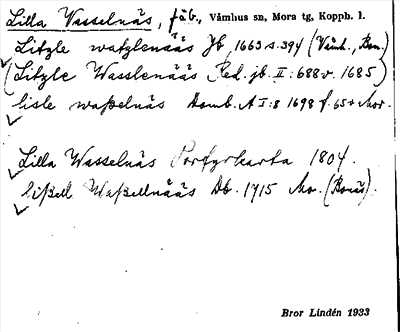 Lilla Wasselnäs, fäb., Våmhus sn, Mora tg, Koppb. l.
Litzle watzlenääs Jb, 1663 s. 394 (Våmh., Bon.)
(Litzle Wasslenääs Red. jb. II: 688 v. 1685)
lisle waßelnäs Domb. A I: 8 1698 f. 65 Mor.
Lilla Wasselnäs Porfyrkarta 1804.
lißell Waßellnääs Db. 1715 Mo. (Bonäs).
Bror Lindén 1933